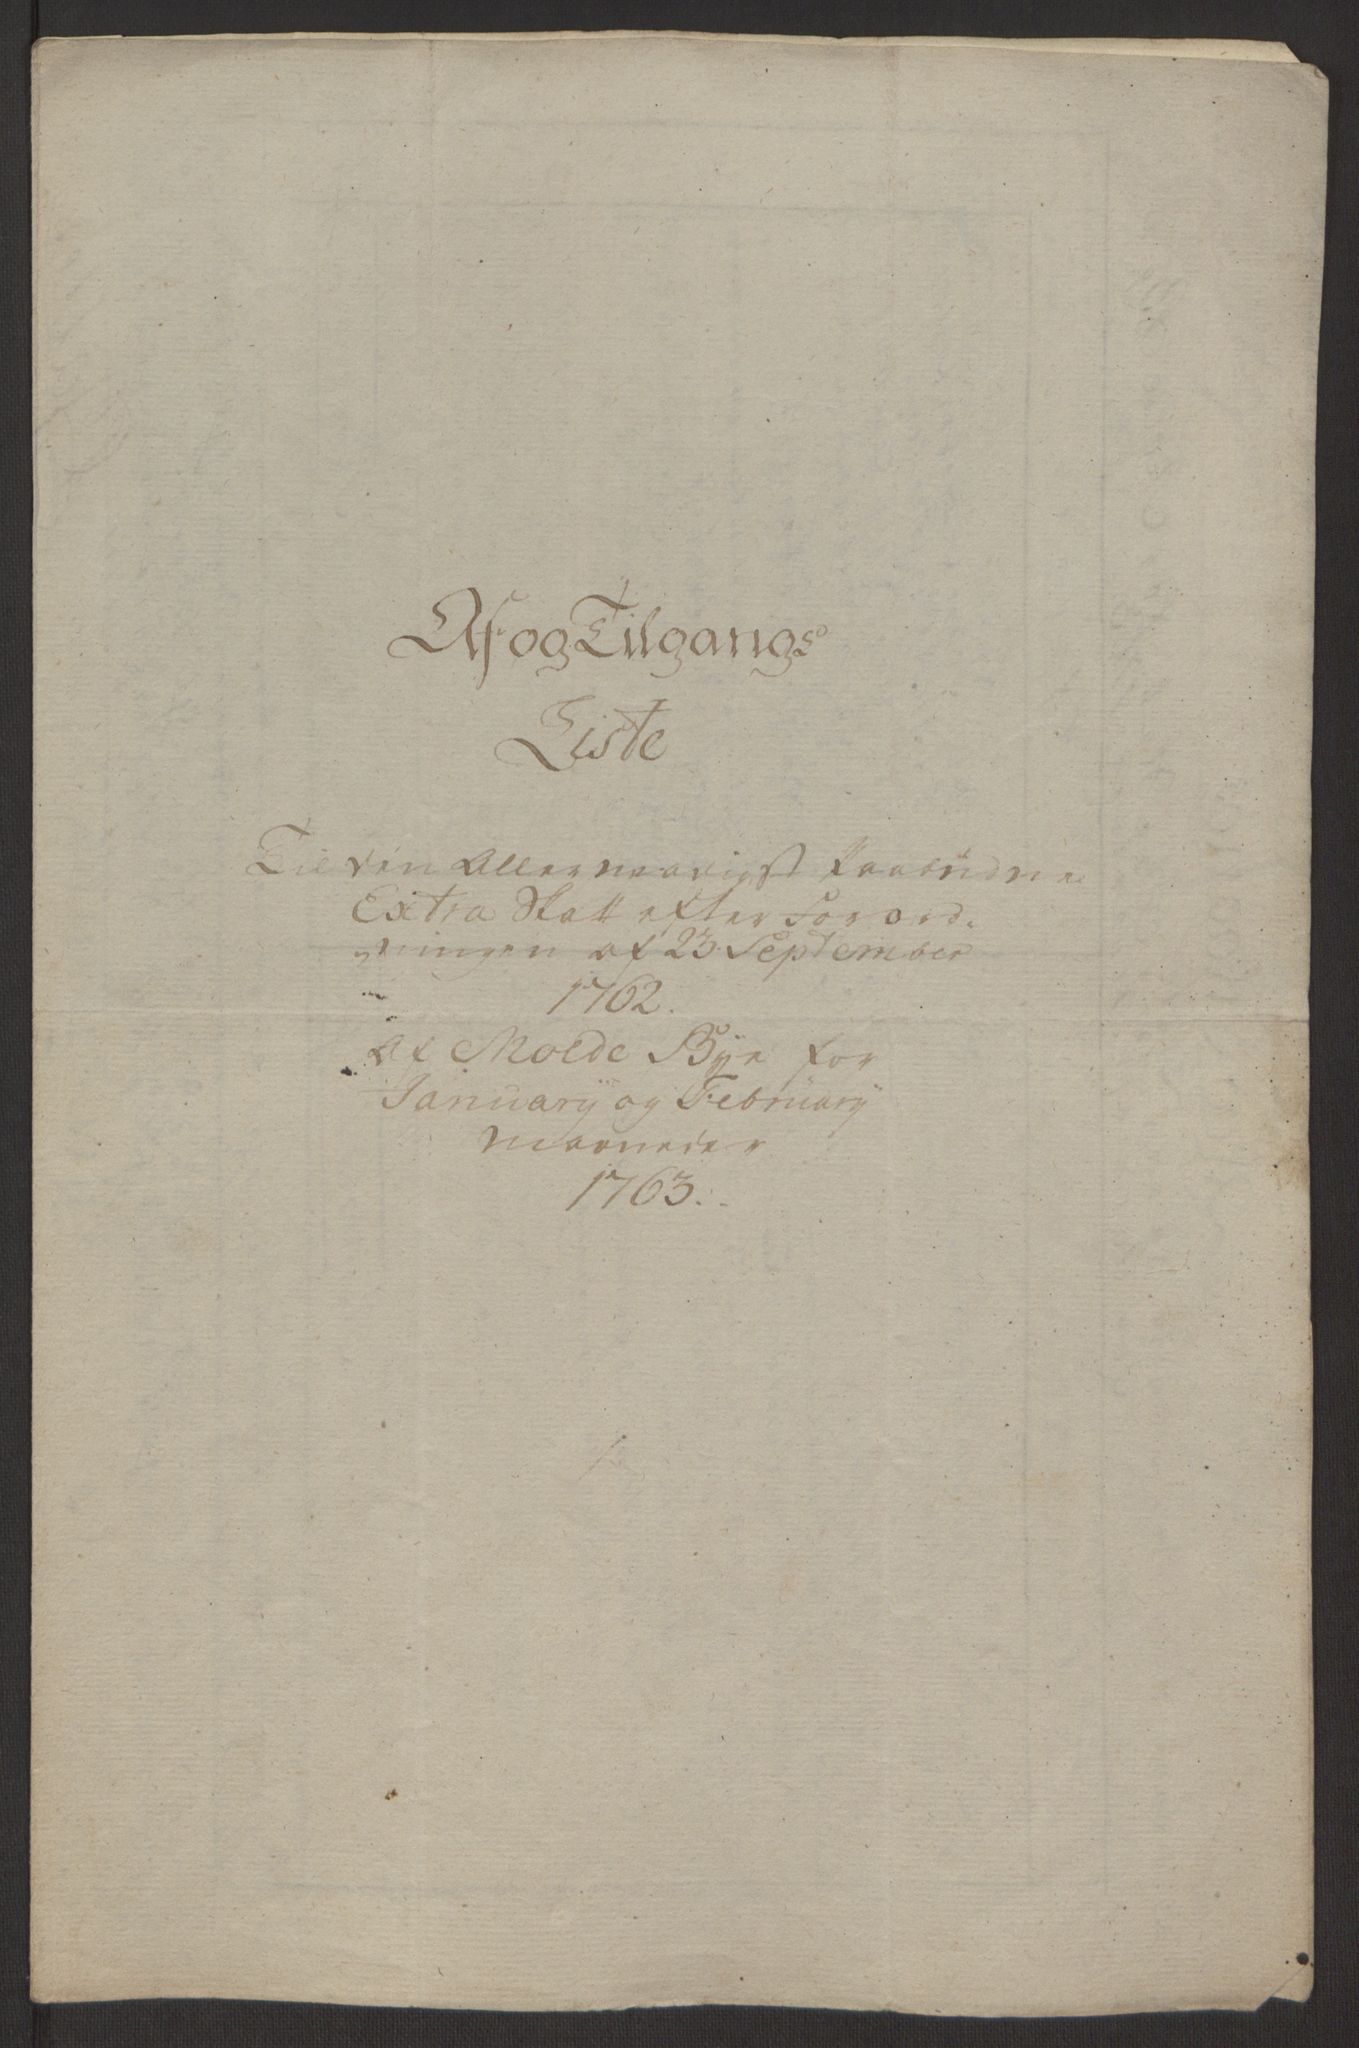 Af og Tilgangs
Liste
Til den Allernaadigst Paabüdne
Extra Skatt efter Forord-
ningen af 23. September
1762.
Af Molde Bÿe for
Januarÿ og Februarÿ
Maaneder
1763.